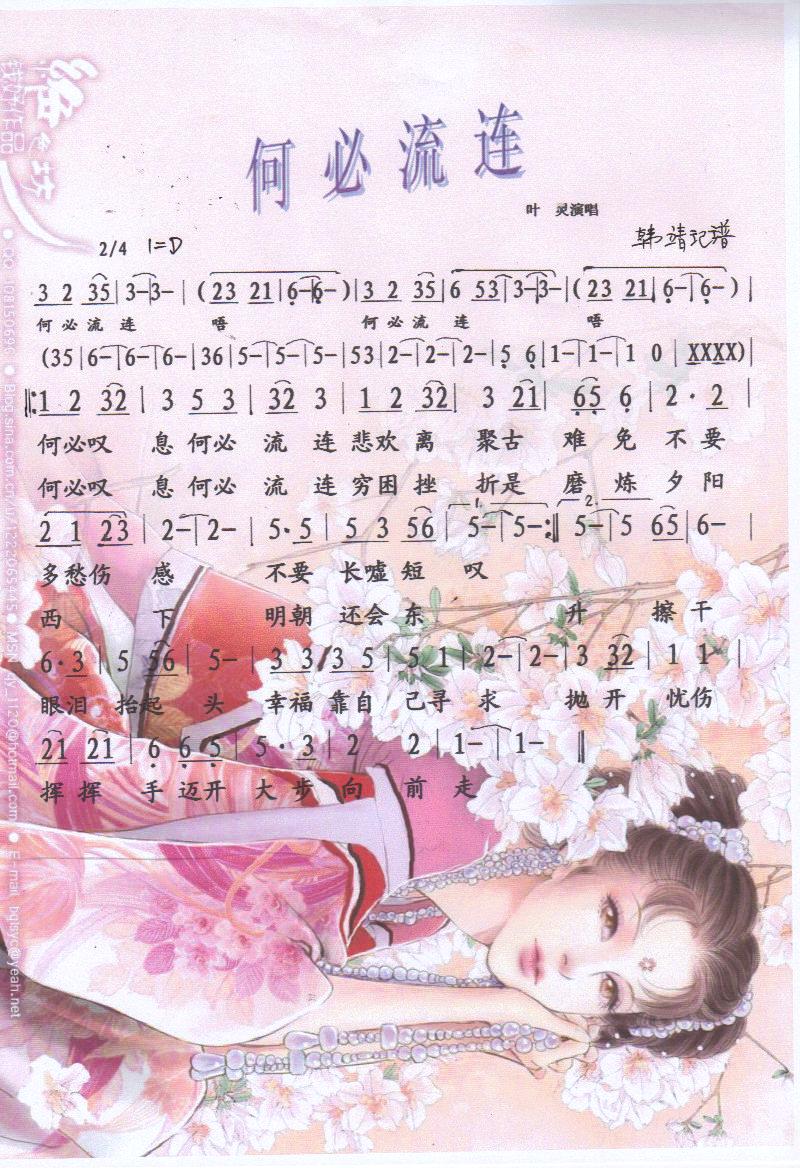 何必流连
叶 灵演唱
韩靖记谱
2/4 1=D
3 2 35|3-|3-|(23 21|6-|6-)|3 2 35|6 53|3-|3-|(23 21|6-|6-)|
何必流连 唔 何必流连 唔
(35|6-|6-|6-|36|5-|5-|5-|53|2-|2-|2-|5 6|1-|1-|1 0|XXXX)|
‖:1 2 32|3 5 3|32 3|1 2 32|3 21|65 6|2·2|
何必叹 息 何必 流 连 悲欢 离 聚古 难 免 不 要
何必叹 息 何必 流 连 穷困 挫 折是 磨 炼 夕 阳
1. 2.
2 1 23|2-|2-|5·5|5 3 56|5-|5-:‖5-|5 65|6-|
多愁伤 感 不要 长嘘 短 叹
西 下 明朝 还会 东 升 擦 干
6·3|5 56|5-|3 3/3 5|5 1|2-|2-|3 32|1 1·|
眼泪 抬起 头 幸福 靠自 己寻 求 抛 开 忧伤
21 21|6 6 5|5·3|2 2|1-|1-‖
挥 挥 手 迈开 大 步 向 前 走